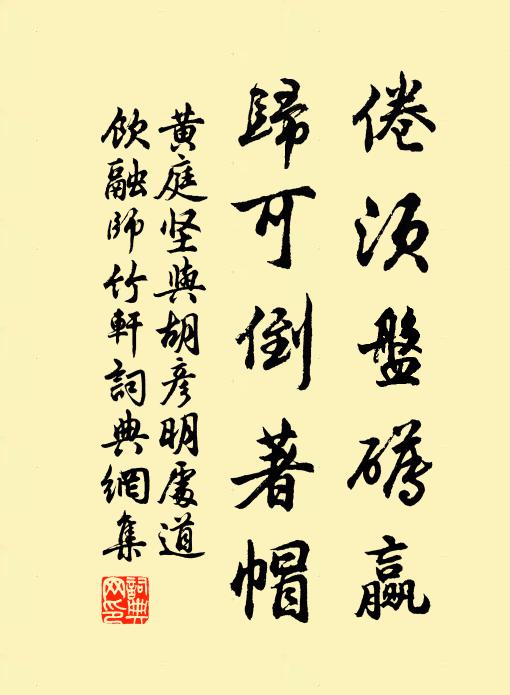 倦須盤礴贏
歸可倒著帽
黃庭坚與胡彥明處道
飲融師竹軒詞典網集
詞典網印